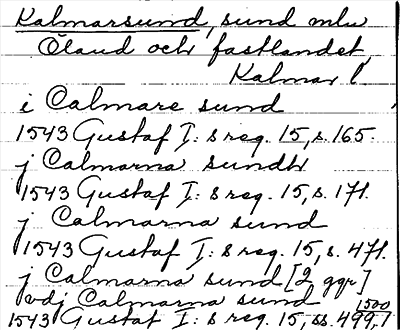 Kalmarsund, sund mlu
Öland och fastlandet,
Kalmar l.
i Calmare sund
1543 Gustaf I:s reg. 15, s. 165.
j Calmarna sundh
1543 Gustaf I:s reg. 15, s. 171.
j Calmarna sund
1543 Gustaf I:s reg. 15, s. 471.
j Calmarna sund [2 ggr]
vdj Calmarna sund
1543 Gustaf I:s reg. 15, ss. 499, 1500